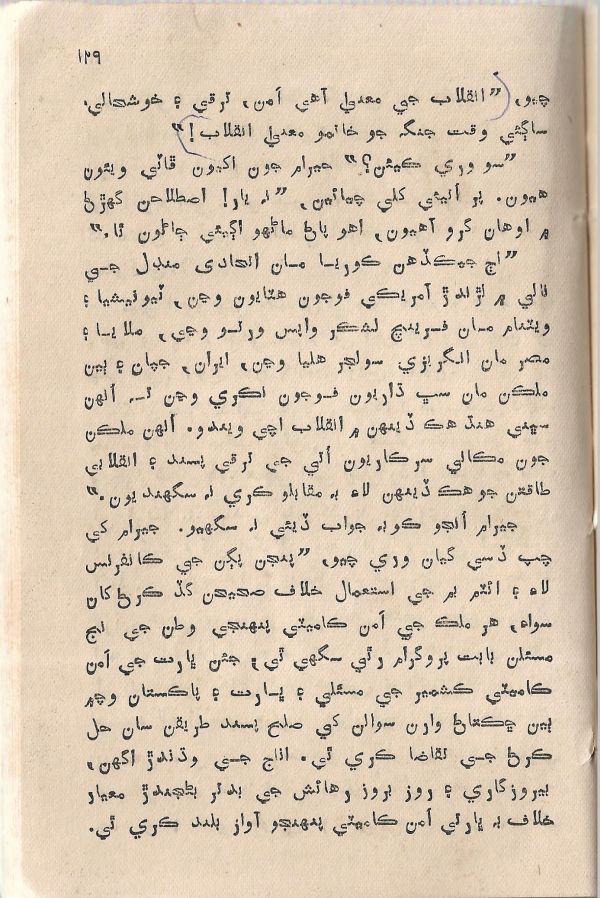 ١٢٩
چيو، ”انقلاب جي معنيٰ آهي اَمن، ترقي ۽ خوشحالي.
ساڳئي وقت جنگ جو خاتمو معنيٰ انقلاب!“
”سو وري ڪيئن؟“ جيرام جون اکيون ڦاٽي ويئون
هيون. پر اُتيئي کلي چيائين، ”نہ يار! اصطلاحن گهڙڻ
۾ اوهان گرو آهيون، اهو پاڻ ماڻهو اڳيئي ڄاڻون ٿا.“
”اڄ جيڪڏهن ڪوريا مان اتحادي منڊل جي
نالي ۾ لڙندڙ آمريڪي فوجون هٽايون وڃن، ٽيونيشيا ۽
ويٽنام مان فرينچ لشڪر واپس ورتو وڃي، ملايا ۽
مصر مان انگريزي سولجر هليا وڃن، ايران، جپان ۽ ٻين
ملڪن مان سڀ ڌاريون فوجون نڪري وڃن تہ اُنهن
سڀني هنڌ هڪ ڏينهن ۾ انقلاب اچي ويندو. اُنهن ملڪن
جون مڪاني سرڪاريون اُتي جي ترقي پسند ۽ انقلابي
طاقتن جو هڪ ڏينهن لاءِ بہ مقابلو ڪري نہ سگهنديون.“
جيرام اُنجو ڪوبہ جواب ڏيئي نہ سگهيو. جيرام کي
چپ ڏسي گيان وري چيو، ”پنجن پڳن جي ڪانفرنس
لاءِ ۽ ائٽم بم جي استعمال خلاف صحيحن گڏ ڪرڻ کان
سواءِ، هر ملڪ جي اَمن ڪاميٽي پنهنجي وطن جي نج
مسئلن بابت پروگرام رٿي سگهي ٿي؛ جئن ڀارت جي اَمن
ڪاميٽي ڪشمير جي مسئلي ۽ ڀارت ۽ پاڪستان وچ ۾
ٻين ڇڪتاڻ وارن سوالن کي صلح پسند طريقن سان حل
ڪرڻ جي تقاضا ڪري ٿي. اناج جي وڌندڙ اگهن،
بيروزگاري ۽ روز بروز رهائش جي بدتر بڻجندڙ معيار
خلاف بہ ڀارتي اَمن ڪاميٽي پنهنجو آواز بلند ڪري ٿي.